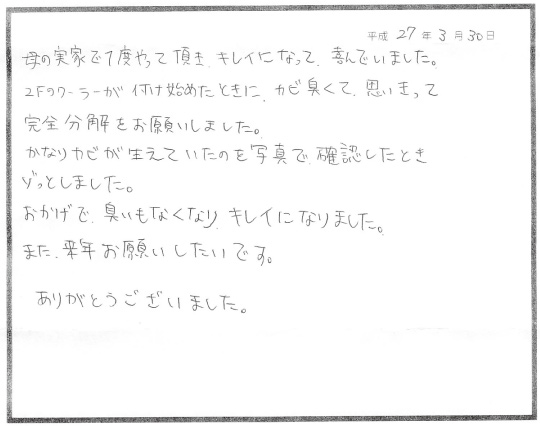 平成 27 年 3 月 30 日
母の実家で1度やって頂き、キレイになって、喜んでいました。
2Fのクーラーが付け始めたときに、カビ臭くて、思いきって
完全分解をお願いしました。
かなりカビが生えていたのを写真で、確認したとき
ゾッとしました。
おかげで、臭いもなくなり、キレイになりました。
また、来年お願いしたいです。
ありがとうございました。